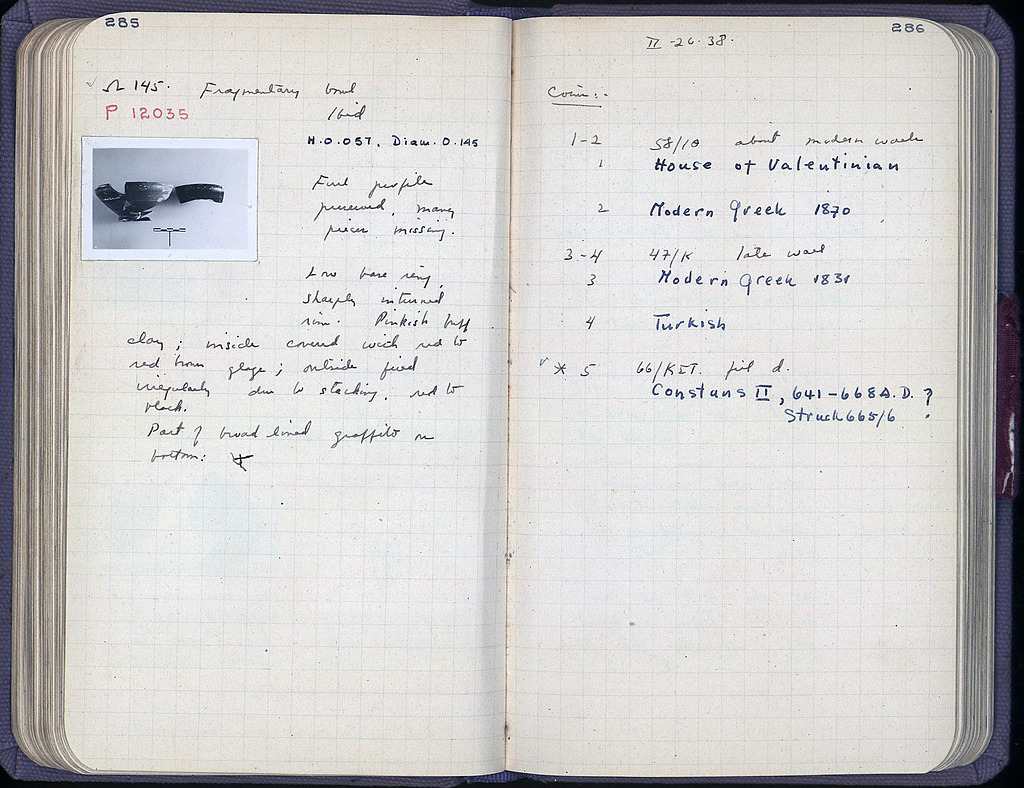 285
Ω 145. Fragmentary bowl
P 12035 Ibid
H. 0.057, Diam. 0.145
Full profile
preserved, many
pieces missing.
Low base ring,
sharply inturned
rim. Pinkish buff
clay; inside covered with red to
red brown glaze; outside fired
irregularly due to stacking, red to
black.
Part of broad lined graffito on
bottom:
286
II-26-38.
Coins:-
1-2 58/ΙΘ about modern walls
1 House of Valentinian
2 Modern Greek 1870
3-4 47/K late wall
3 Modern Greek 1831
4 Turkish
√ * 5 66/ΚΣΤ. fill d.
Constans II, 641-668 A.D. ?
Struck 665/6